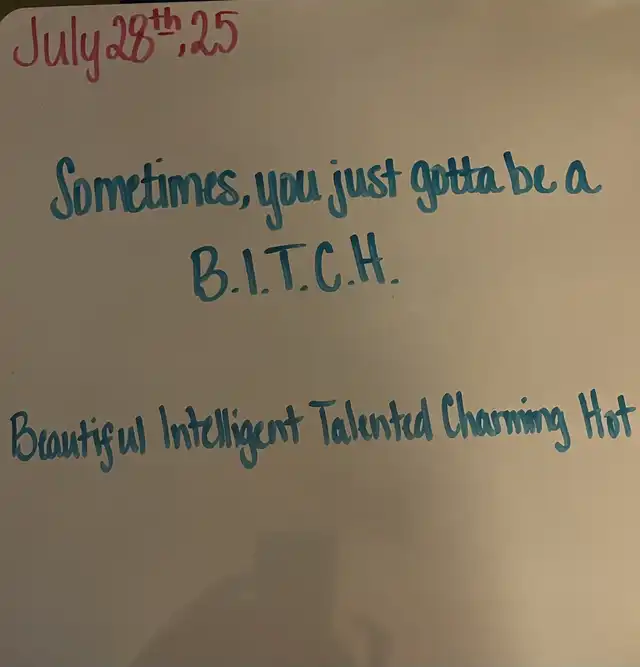 July 28th, 25
Sometimes, you just gotta be a
B.I.T.C.H.
Beautiful Intelligent Talented Charming Hot